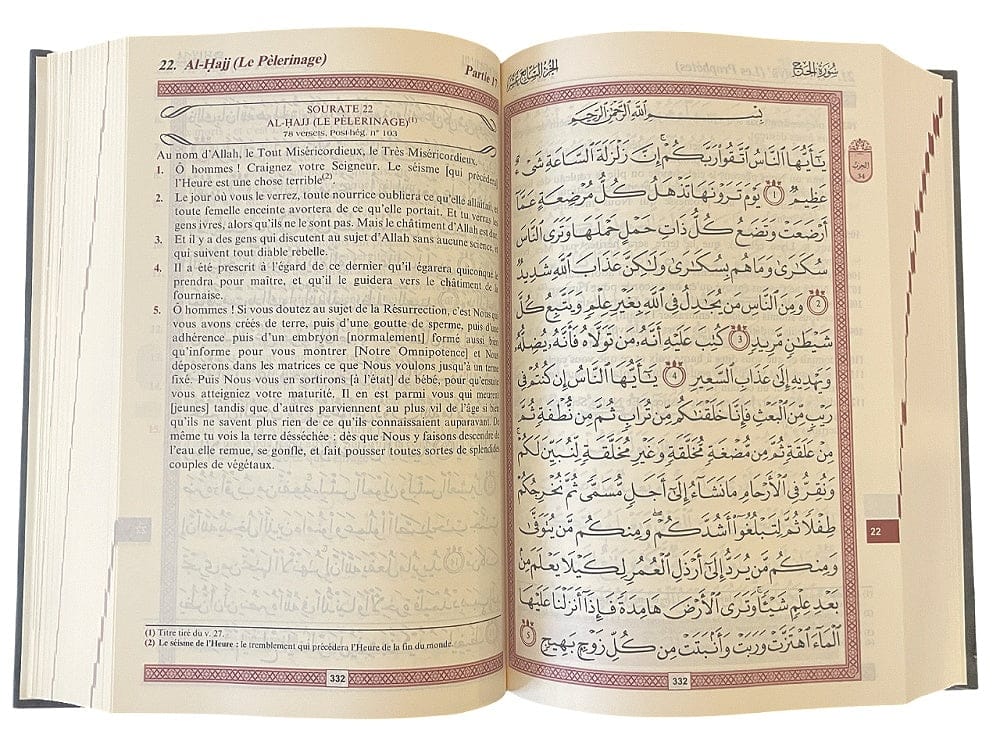 22. Al-Ḥajj (Le Pèlerinage)
Partie 17
SOURATE 22
AL-ḤAJJ (LE PÈLERINAGE)(1)
78 versets, Post-hég. n° 103
Au nom d'Allah, le Tout Miséricordieux, le Très Miséricordieux.
1. Ô hommes ! Craignez votre Seigneur. Le séisme [qui précédera]
l'Heure est une chose terrible(2)
2. Le jour où vous le verrez, toute nourrice oubliera ce qu'elle allaitait, et
toute femelle enceinte avortera de ce qu'elle portait. Et tu verras les
gens ivres, alors qu'ils ne le sont pas. Mais le châtiment d'Allah est dur.
3. Et il y a des gens qui discutent au sujet d'Allah sans aucune science, et
qui suivent tout diable rebelle.
4. Il a été prescrit à l'égard de ce dernier qu'il égarera quiconque le
prendra pour maître, et qu'il le guidera vers le châtiment de la
fournaise.
5. Ô hommes ! Si vous doutez au sujet de la Résurrection, c'est Nous qui
vous avons créés de terre, puis d'une goutte de sperme, puis d'une
adhérence puis d'un embryon [normalement] formé aussi bien
qu'informe pour vous montrer [Notre Omnipotence] et Nous
déposerons dans les matrices ce que Nous voulons jusqu'à un terme
fixé. Puis Nous vous en sortirons [à l'état] de bébé, pour qu'ensuite
vous atteigniez votre maturité. Il en est parmi vous qui meurent
[jeunes] tandis que d'autres parviennent au plus vil de l'âge si bien
qu'ils ne savent plus rien de ce qu'ils connaissaient auparavant. De
même tu vois la terre désséchée : dès que Nous y faisons descendre de
l'eau elle remue, se gonfle, et fait pousser toutes sortes de splendides
couples de végétaux.
(1) Titre tiré du v. 27.
(2) Le séisme de l'Heure : le tremblement qui précédera l'Heure de la fin du monde.
332
الجزء السابع عشر
سورة الحج
بِسْمِ اللَّهِ الرَّحْمَٰنِ الرَّحِيمِ
يَٰٓأَيُّهَا النَّاسُ اتَّقُوا رَبَّكُمْ إِنَّ زَلْزَلَةَ السَّاعَةِ شَيْءٌ
عَظِيمٌ ١ يَوْمَ تَرَوْنَهَا تَذْهَلُ كُلُّ مُرْضِعَةٍ عَمَّا
أَرْضَعَتْ وَتَضَعُ كُلُّ ذَاتِ حَمْلٍ حَمْلَهَا وَتَرَى النَّاسَ
سُكَٰرَىٰ وَمَا هُم بِسُكَٰرَىٰ وَلَٰكِنَّ عَذَابَ اللَّهِ شَدِيدٌ
٢ وَمِنَ النَّاسِ مَن يُجَٰدِلُ فِي اللَّهِ بِغَيْرِ عِلْمٍ وَيَتَّبِعُ كُلَّ
شَيْطَٰنٍ مَّرِيدٍ ٣ كُتِبَ عَلَيْهِ أَنَّهُۥ مَن تَوَلَّاهُ فَأَنَّهُۥ يُضِلُّهُۥ
وَيَهْدِيهِ إِلَىٰ عَذَابِ السَّعِيرِ ٤ يَٰٓأَيُّهَا النَّاسُ إِن كُنتُمْ فِي
رَيْبٍ مِّنَ الْبَعْثِ فَإِنَّا خَلَقْنَٰكُم مِّن تُرَابٍ ثُمَّ مِن نُّطْفَةٍ ثُمَّ
مِنْ عَلَقَةٍ ثُمَّ مِن مُّضْغَةٍ مُّخَلَّقَةٍ وَغَيْرِ مُخَلَّقَةٍ لِّنُبَيِّنَ لَكُمْ
وَنُقِرُّ فِي الْأَرْحَامِ مَا نَشَآءُ إِلَىٰٓ أَجَلٍ مُّسَمًّى ثُمَّ نُخْرِجُكُمْ
طِفْلًا ثُمَّ لِتَبْلُغُوٓا أَشُدَّكُمْ وَمِنكُم مَّن يُتَوَفَّىٰ
وَمِنكُم مَّن يُرَدُّ إِلَىٰٓ أَرْذَلِ الْعُمُرِ لِكَيْلَا يَعْلَمَ مِنۢ
بَعْدِ عِلْمٍ شَيْـًٔا وَتَرَى الْأَرْضَ هَامِدَةً فَإِذَآ أَنزَلْنَا عَلَيْهَا
الْمَآءَ اهْتَزَّتْ وَرَبَتْ وَأَنۢبَتَتْ مِن كُلِّ زَوْجٍۭ بَهِيجٍ ٥
الحزب
34
22
332